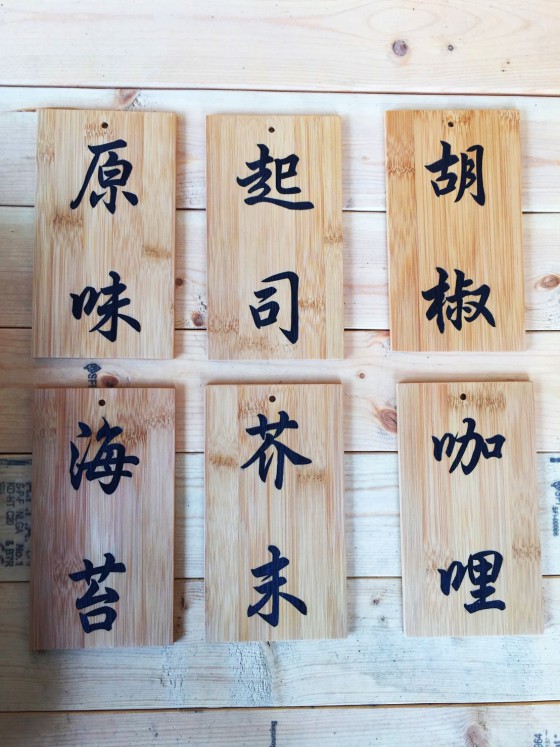 原味
起司
胡椒
海苔
芥末
咖哩